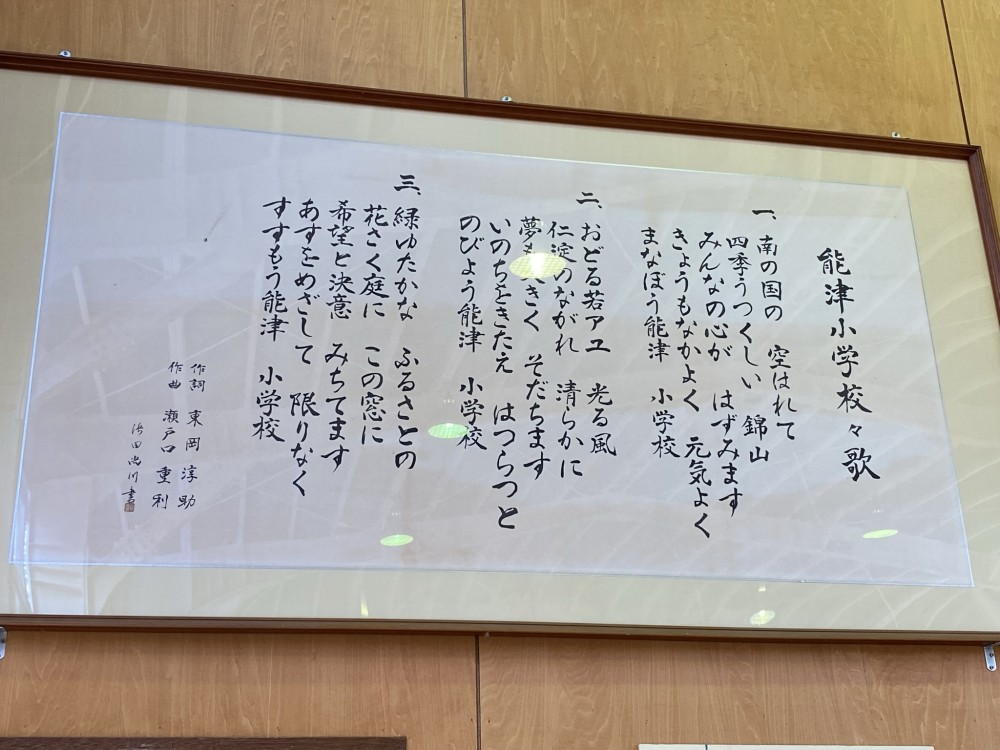 能津小学校々歌
一、南の国の 空はれて
四季うつくしい 錦山
みんなの心が はずみます
きょうもなかよく 元気よく
まなぼう能津 小学校
二、おどる若アユ 光る風
仁淀のながれ 清らかに
夢も きく そだちます
いのちをきたえ はつらつと
のびよう能津 小学校
三、緑ゆたかな ふるさとの
花さく庭に この窓に
希望と決意 みちてます
あすをめざして 限りなく
すすもう能津 小学校
作詞 東岡淳助
作曲 瀬戸口重利
田 川 書